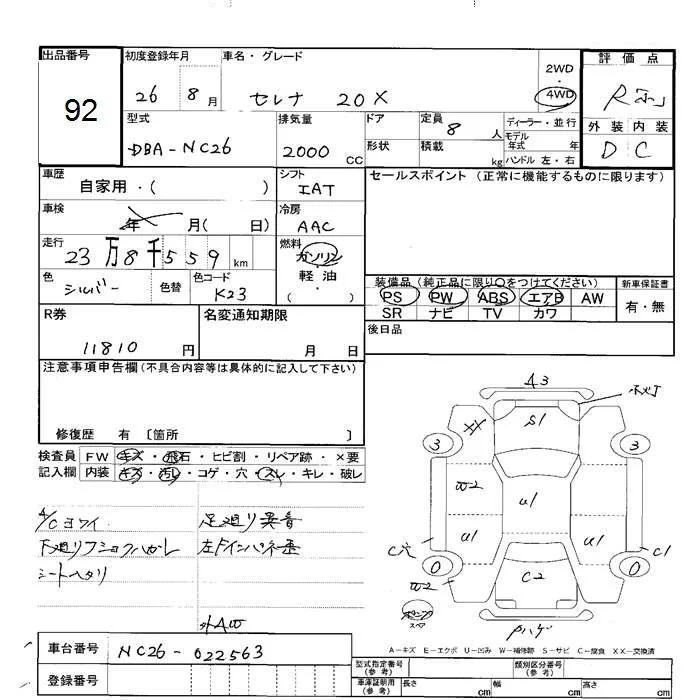 出品番号
92
初度登録年月
26 8月
車名・グレード
セレナ 20X
2WD
・
4WD
評価点
R
外装 内装
D C
型式
DBA-NC26
排気量
2000 CC
ドア
形状
定員
8人
積載
kg
ディーラー・並行
モデル
年式 年
ハンドル 左・右
車歴
自家用・( )
シフト
IAT
セールスポイント(正常に機能するものに限ります)
車検
年 月( 日)
冷房
AAC
走行
23万8千559km
燃料
ガソリン
・
軽油
・
( )
色
シルバー
色替
色コード
K23
装備品(純正品に限り○をつけてください)
PS PW ABS エアB AW
SR ナビ TV カワ
新車保証書
有・無
後日品
R券
11810円
名変通知期限
月 日
注意事項申告欄(不具合内容等は具体的に記入して下さい)
修復歴 有 〔箇所 〕
検査員
記入欄
FW キズ・飛石・ヒビ割・リペア跡・×要
内装 キズ・汚レ・コゲ・穴・スレ・キレ・破レ
A/Cヨワイ
足廻り異音
下廻りフショクハガレ
左Fインパネ歪
シートヘタリ
外AW
A3
S1
3
3
W2
U1
U1
U1
C穴
C1
0
0
C2
W2
スペア
Pハゲ
A-キズ E-エクボ U-凹み W-補修跡 S-サビ C-腐食 XX-交換済
車台番号
NC26-022563
登録番号
型式指定番号
(参考)
類別区分番号
(参考)
車庫証明用
(参考)
長さ cm
幅 cm
高さ cm